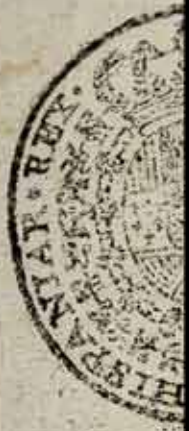 HISPANIAR · REX ·